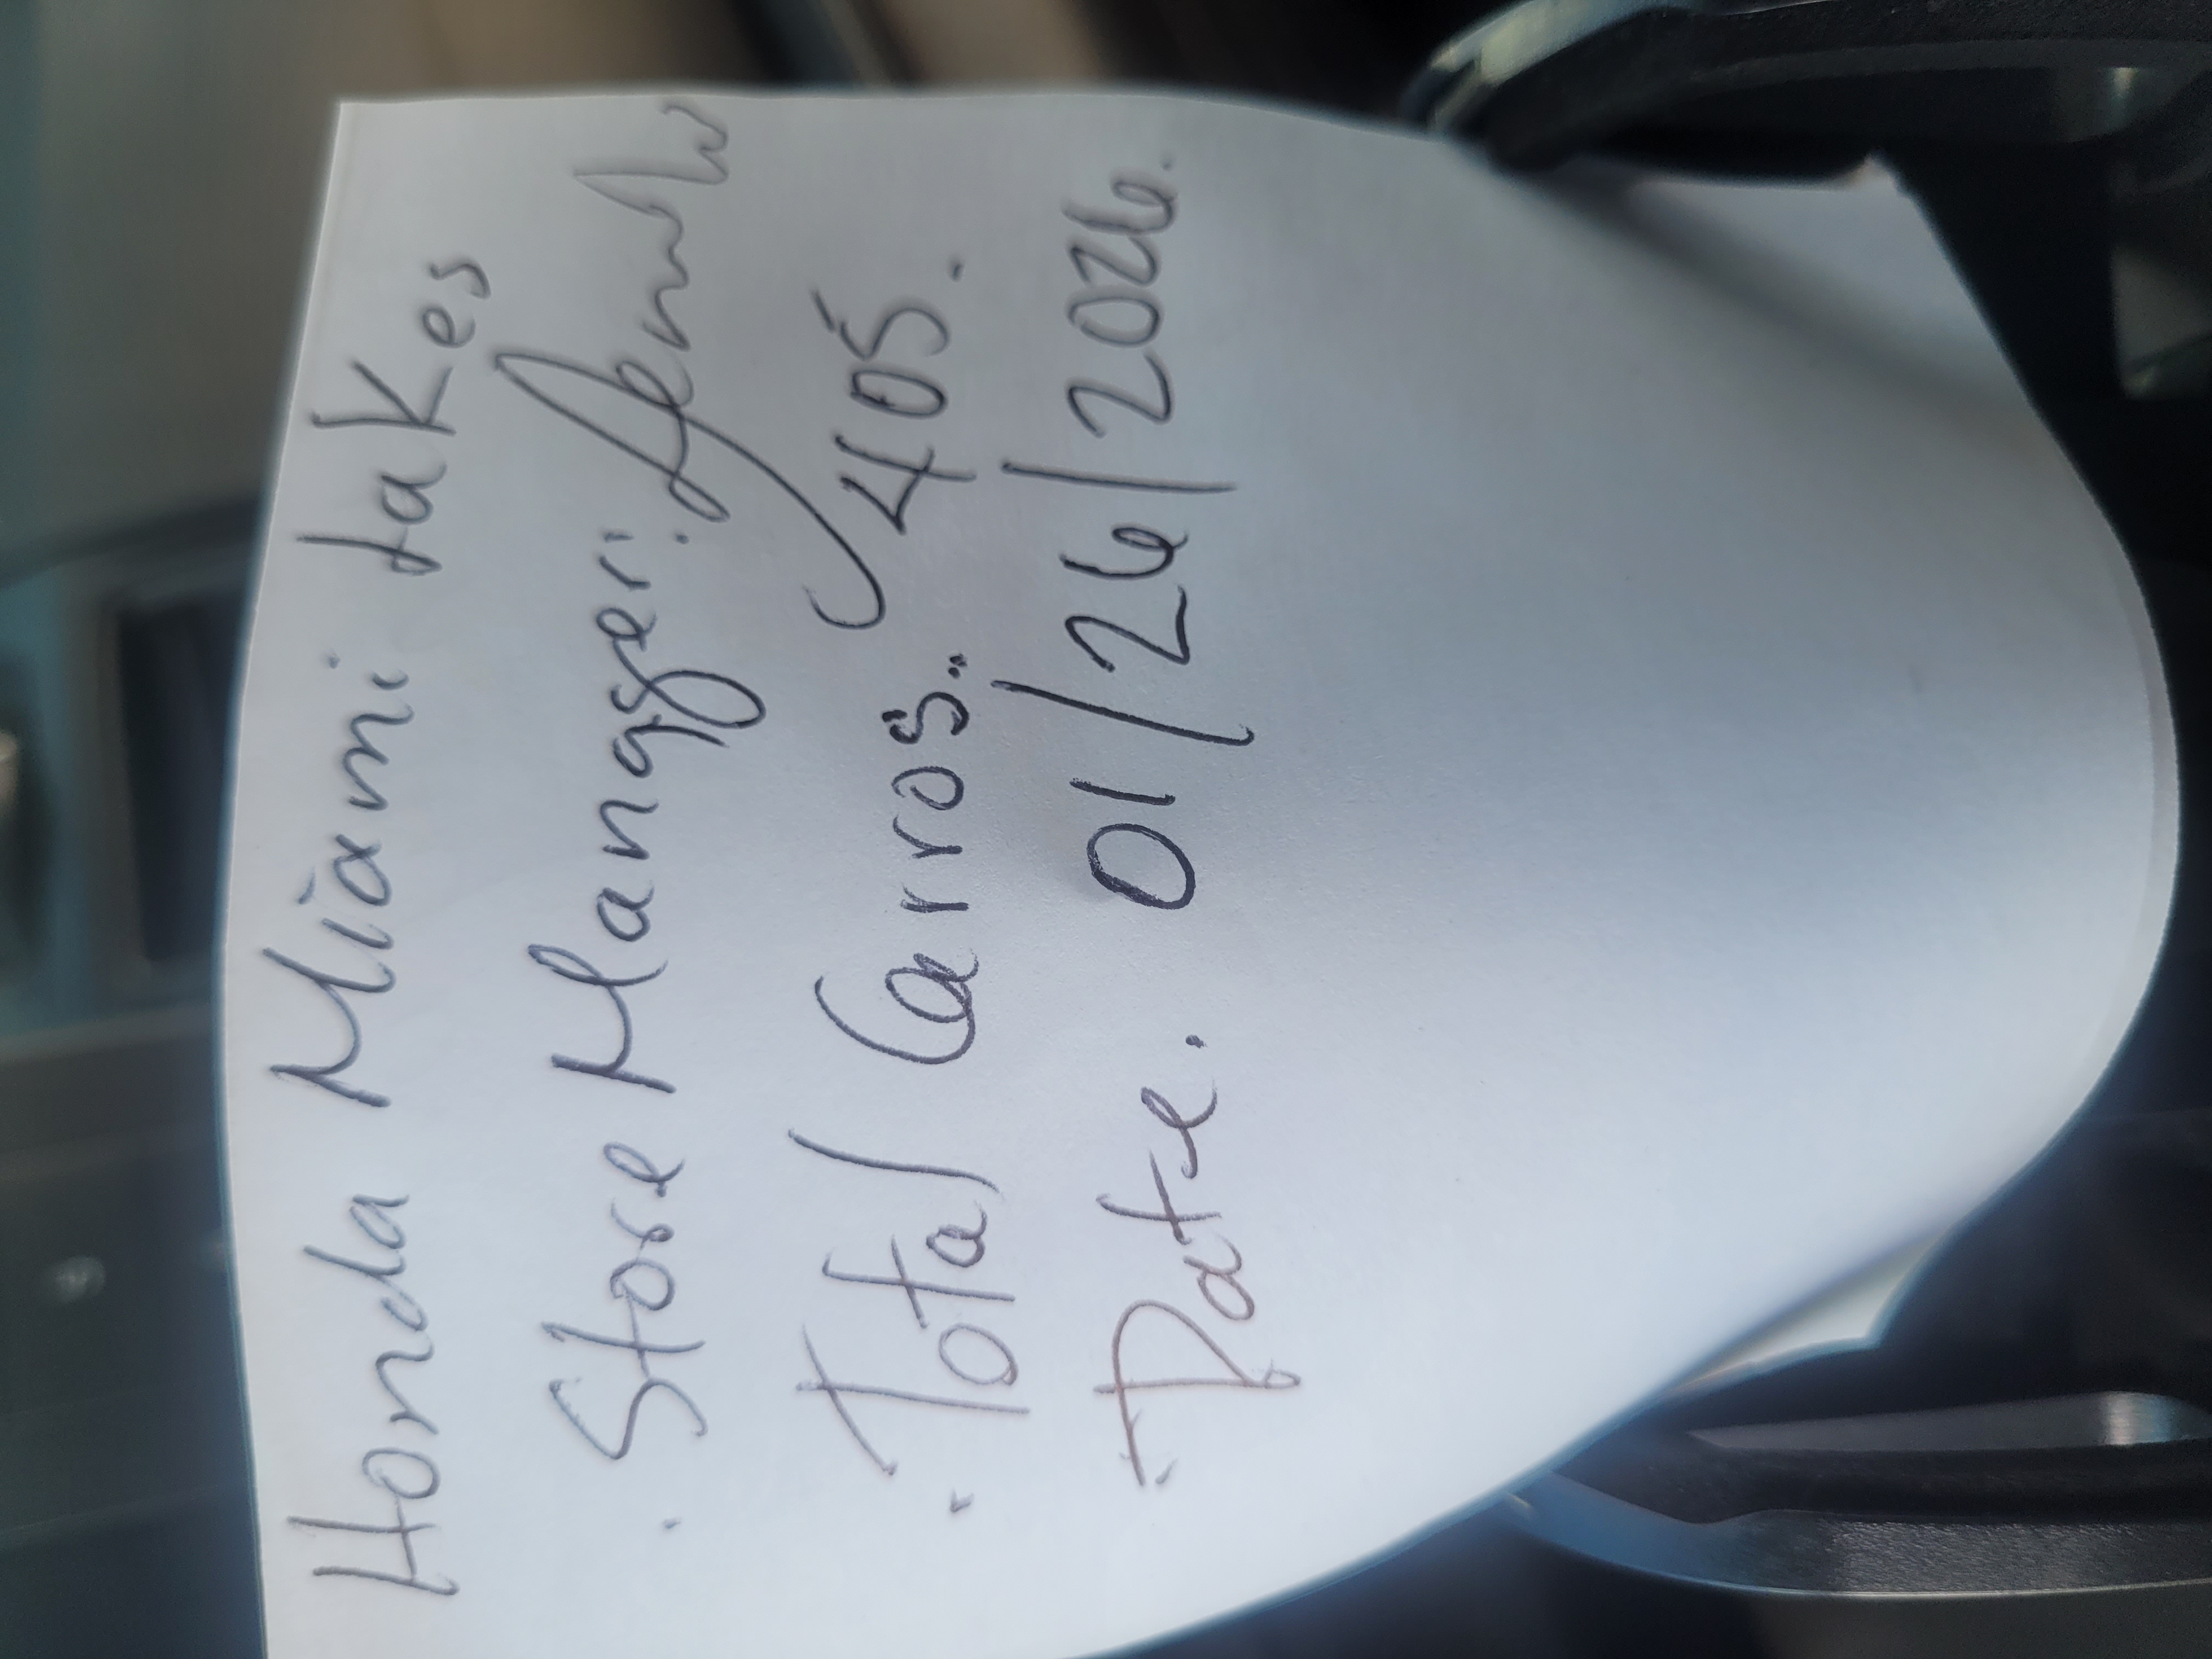 Honda Miami takes
. Store Mangger:
. Total Carros.. 405.
. Date. 01/26/2026.